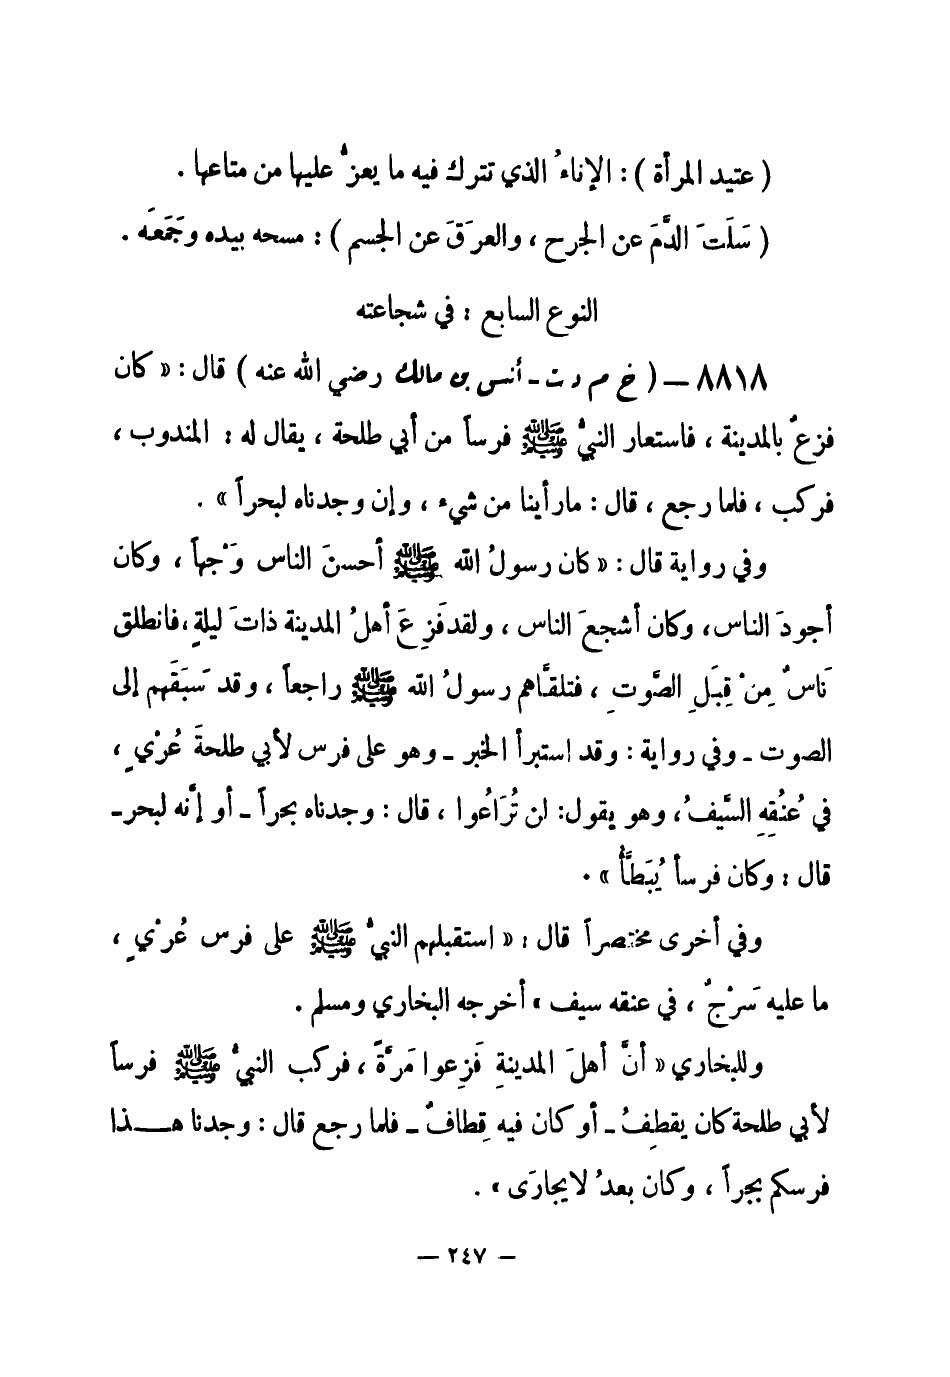 ( عتيد المرأة ) : الإناءُ الذي تترك فيه ما يعزُّ عليها من متاعها .
( سَلَتَ الدَّمَ عن الجرح ، والعرَقَ عن الجسم ) : مسحه بيده وجَمَعَه .
النوع السابع : في شجاعته
٨٨١٨ – ( خ م د ت - أنس بن مالك رضي الله عنه ) قال : « كان
فزعٌ بالمدينة ، فاستعار النبيُّ ﷺ فرساً من أبي طلحة ، يقال له : المندوب ،
فركب ، فلما رجع ، قال : مارأينا من شيء ، وإن وجدناه لبحراً » .
وفي رواية قال : « كان رسولُ الله ﷺ أحسنَ الناس وَجْهاً ، وكان
أجودَ الناس، وكان أشجعَ الناس ، ولقدفَزِعَ أهلُ المدينة ذاتَ ليلةٍ ،فانطلق
نَاسٌ مِنْ قِبَلِ الصَّوتِ ، فتلقَّاهم رسولُ الله ﷺ راجعاً ، وقد سَبَقَهم إلى
الصوت - وفي رواية : وقد استبرأ الخبر - وهو على فرس لأبي طلحةَ عُرْيٍ ،
في عُنُقِهِ السَّيفُ ، وهو يقول: لن تُرَاعُوا ، قال : وجدناه بحراً - أو إنَّه لبحر -
قال : وكان فرساً يُبَطَّأُ » .
وفي أخرى مختصراً قال : « استقبلهم النبيُّ ﷺ على فرس عُرْيٍ ،
ما عليه سَرْجٌ ، في عنقه سيف » أخرجه البخاري ومسلم .
وللبخاري « أنَّ أهلَ المدينةِ فَزِعوا مَرَّةً ، فركب النبيُّ ﷺ فرساً
لأبي طلحة كان يقطِفُ - أو كان فيه قِطافٌ - فلما رجع قال : وجدنا هـــذا
فرسكم بحراً ، وكان بعدُ لايجارَى » .
– ٢٤٧ –